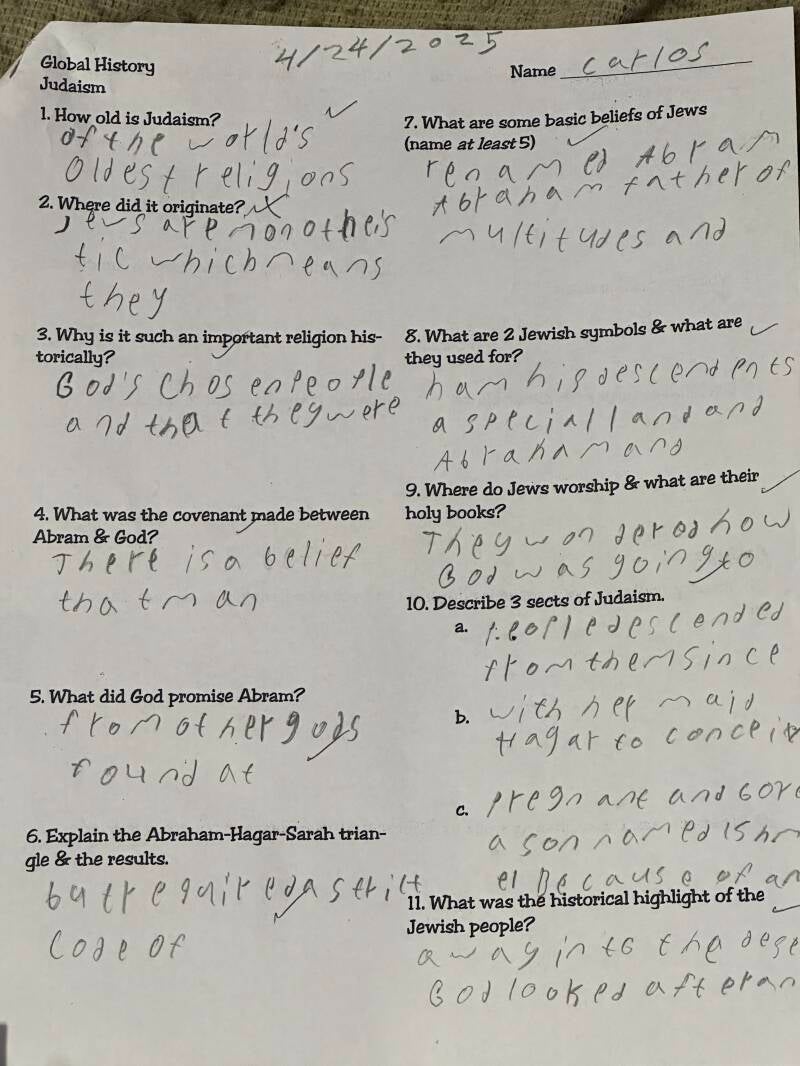 4/24/2025
Global History
Judaism
Name Carlos
1. How old is Judaism?
of the world's
Oldest religions
2. Where did it originate?
Jews are monotheis
tic which means
they
3. Why is it such an important religion his-
torically?
God's Chosen People
and that they were
4. What was the covenant made between
Abram & God?
There is a belief
that man
5. What did God promise Abram?
from other gods
found at
6. Explain the Abraham-Hagar-Sarah trian-
gle & the results.
but required a strict
Code of
7. What are some basic beliefs of Jews
(name at least 5)
renamed Abram
Abraham father of
multitudes and
8. What are 2 Jewish symbols & what are
they used for?
ham his descendents
a special land and
Abraham and
9. Where do Jews worship & what are their
holy books?
They wondered how
God was going to
10. Describe 3 sects of Judaism.
a. People descended
from them since
b. with her maid
Hagar to conceive
c. pregnant and bore
a son named Ishm
el Because of an
11. What was the historical highlight of the
Jewish people?
away into the dese
God looked after an